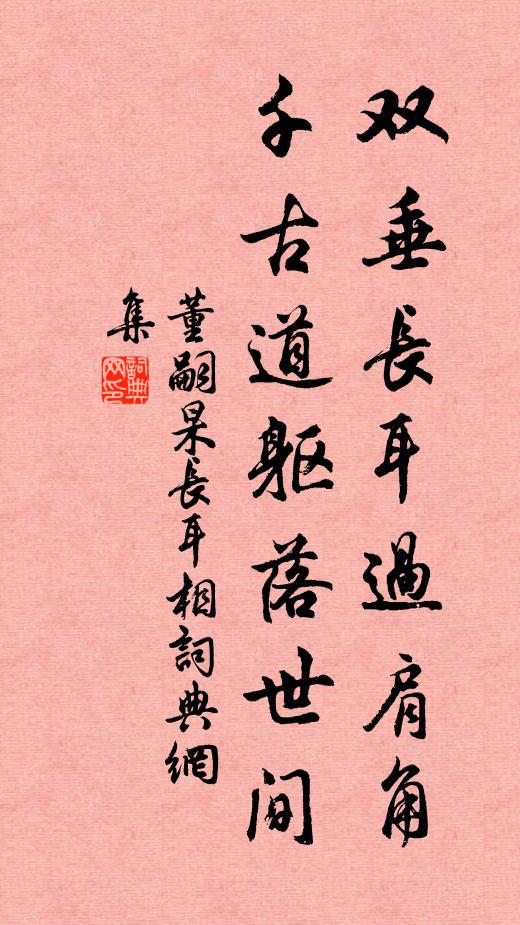 双垂長耳過肩角
千古道躯落世間
董嗣杲長耳相詞典網
集
詞典网印